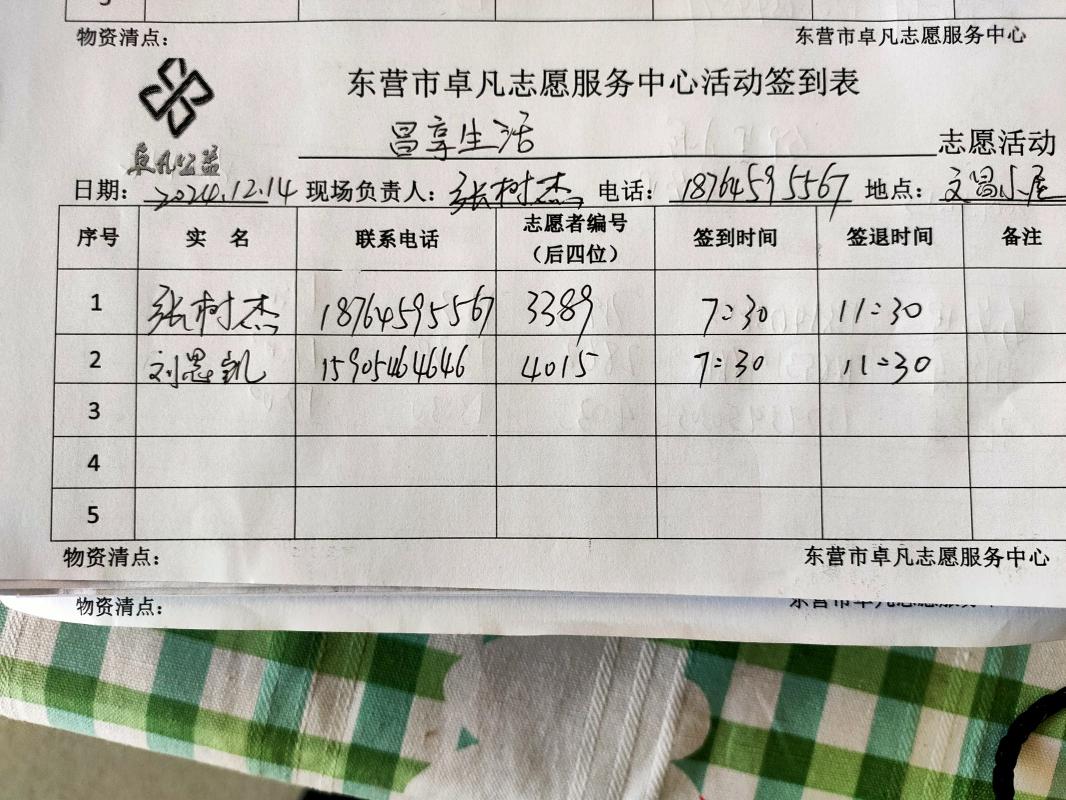 物资清点： 东营市卓凡志愿服务中心
卓凡公益
东营市卓凡志愿服务中心活动签到表
昌享生活 志愿活动
日期： 2024.12.14 现场负责人： 张树杰 电话： 18764595567 地点： 文昌小屋
序号 实 名 联系电话 志愿者编号（后四位） 签到时间 签退时间 备注
1 张树杰 18764595567 3389 7:30 11:30
2 刘思凯 15905464646 4015 7:30 11:30
3
4
5
物资清点： 东营市卓凡志愿服务中心
物资清点： 东营市卓凡志愿服务中